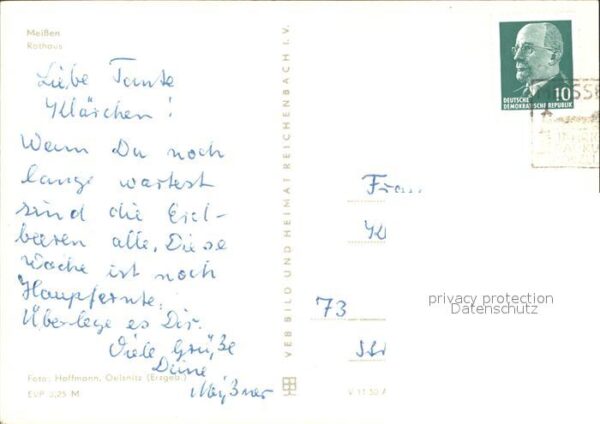 Meißen
Rathaus
Liebe Tante
Klärchen!
Wenn Du noch
lange wartest
sind die Erd-
beeren alle. Diese
Woche ist noch
Haupternte.
Überlege es Dir.
Viele Grüße
Deine
Meißner
Foto: Hoffmann, Oelsnitz (Erzgeb.)
EVP 0,25 M
VEB BILD UND HEIMAT REICHENBACH I. V.
10
DEUTSCHE
DEMOKRATISCHE REPUBLIK
Frau
73
privacy protection
Datenschutz
V 11 50 A